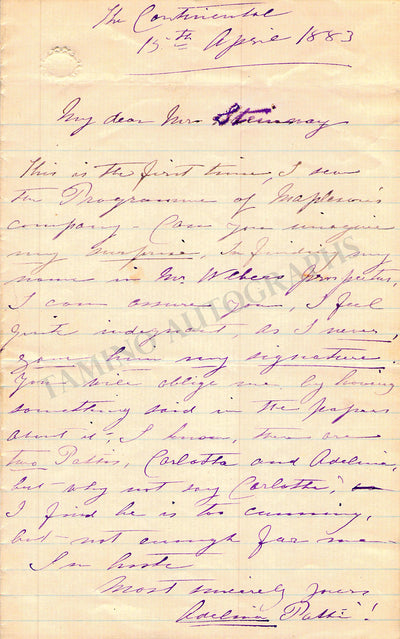 The Continental
15th April 1883
My dear Mrs Steinway
This is the first time, I see
the Programme of Mapleson's
company - Can you imagine
my surprise, In finding my
name in Mr. Webers prospectus,
I can assure you, I feel
quite indignant, as I never,
gave him my signature.
You will oblige me by having
something said in the papers
about it, I know, there are
two Pattis, Carlotta and Adelina,
but why not say Carlotta,
I find he is too cunning,
but not enough for me
In haste
Most sincerely yours
Adelina Patti!
TAMINO AUTOGRAPHS